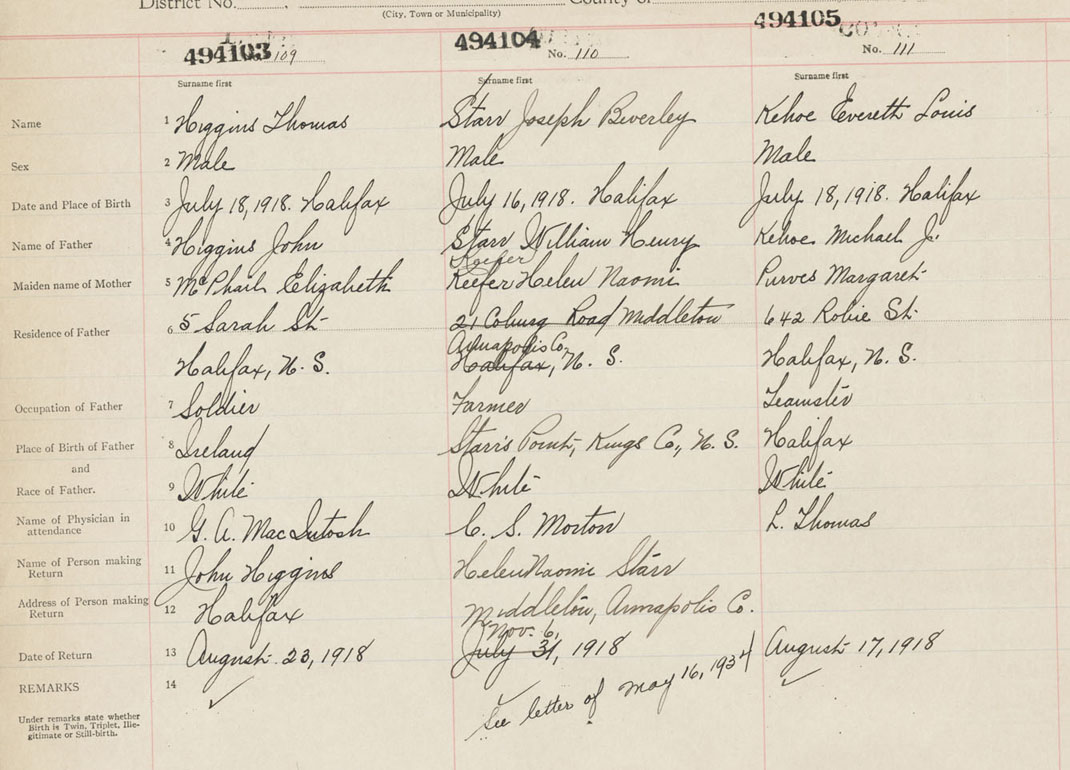 District No. County of
(City, Town or Municipality)
494103 No. 109
494104 No. 110
494105 No. 111
Surname first Surname first Surname first
Name 1 Higgins Thomas Starr Joseph Beverley Kehoe Evereth Louis
Sex 2 Male Male Male
Date and Place of Birth 3 July 18, 1918. Halifax July 16, 1918. Halifax July 18, 1918. Halifax
Name of Father 4 Higgins John Starr William Henry Kehoe Michael J.
Maiden name of Mother 5 McPhail Elizabeth Keefer Helen Naomi Purves Margaret
Residence of Father 6 5 Sarah St. 21 Coburg Road Middleton 642 Robie St.
Annapolis Co.
Halifax, N. S. Halifax, N. S. Halifax, N. S.
Occupation of Father 7 Soldier Farmer Teamster
Place of Birth of Father 8 Ireland Starr's Point, Kings Co., N. S. Halifax
and
Race of Father. 9 White White White
Name of Physician in attendance 10 G. A. MacIntosh C. S. Morton L. Thomas
Name of Person making Return 11 John Higgins Helen Naomi Starr
Address of Person making Return 12 Halifax Middleton, Annapolis Co.
Nov. 6,
Date of Return 13 August 23, 1918 July 31, 1918 August 17, 1918
REMARKS 14
See letter of May 16, 1934
Under remarks state whether
Birth is Twin, Triplet, Ille-
gitimate or Still-birth.